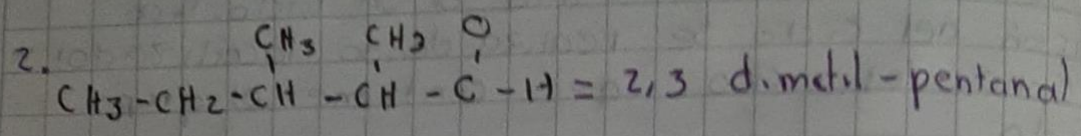 CH3 CH3 O
2. CH3-CH2-CH-CH-C-H = 2,3 dimetil-pentanal